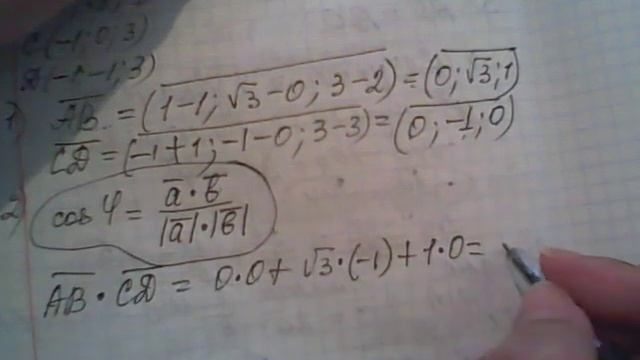 C(-1; 0; 3)
D(-1; -1; 3)
1) AB = (1-1; √3-0; 3-2) = (0; √3; 1)
CD = (-1+1; -1-0; 3-3) = (0; -1; 0)
2) cos φ = a·b / |a|·|b|
AB · CD = 0·0 + √3·(-1) + 1·0 =